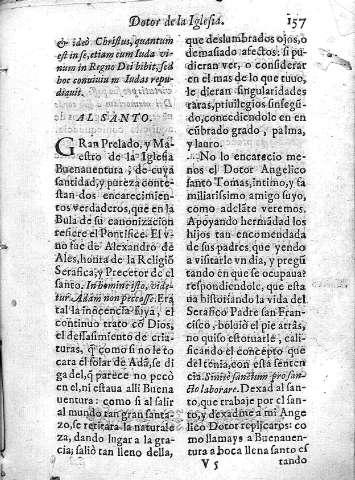 Dotor de la Iglesia. 157
& ideò Christus, quantum
est in se, etiam cum Iuda vi-
num in Regno Dei bibit, sed
hoc conuiuium Iudas repu-
diauit.
AL SANTO.
GRan Prelado, y Ma-
estro de la Iglesia
Buenauentura, de cuya
santidad, y pureza conte-
stan dos encarecimien-
tos verdaderos, que en la
Bula de su canonizacion
refiere el Pontifice. El v-
no fue de Alexandro de
Ales, honra de la Religiõ
Serafica, y Precetor de el
santo. In homine isto, vide-
tur Adam non peccasse. Era
tal la inocencia suya, el
continuo trato cõ Dios,
el dessasimiento de cria-
turas, q̃ como si no le to-
cara el solar de Adã, se di-
ga del, q̃ parece no peco
en el, ni estaua alli Buena
uentura: como si al salir
al mundo tan gran santa-
zo, se retirara la naturale-
za, dando lugar a la gra-
cia, saliò tan lleno della,
que deslumbrados ojos, o
demasiado afectos: si pu-
dieran ver, o considerar
en el mas de lo que tuuo,
le dieran singularidades
raras, priuilegios sin segũ-
do, concediendole en en-
cũbrado grado, palma,
y lauro.
No lo encarecio me-
nos el Dotor Angelico
santo Tomas, intimo, y fa
miliarissimo amigo suyo,
como adelãte veremos.
Apoyando hermãdad los
hijos tan encomendada
de sus padres, que yendo
a visitarle vn dia, y pregũ
tando en que se ocupaua?
respondiendole, que esta
ua historiando la vida del
Serafico Padre san Fran-
cisco, boluiò el pie atràs,
no quiso estoruarle, cali-
ficando el concepto que
del tenia, con esta senten
cia. Sinite sanctum pro san-
cto laborare. Dexad al san-
to, que trabaje por el san-
to, y dexadme a mi Ange
lico Dotor replicaros: co
mo llamays a Buenauen-
tura a boca llena santo es
V 5 tando